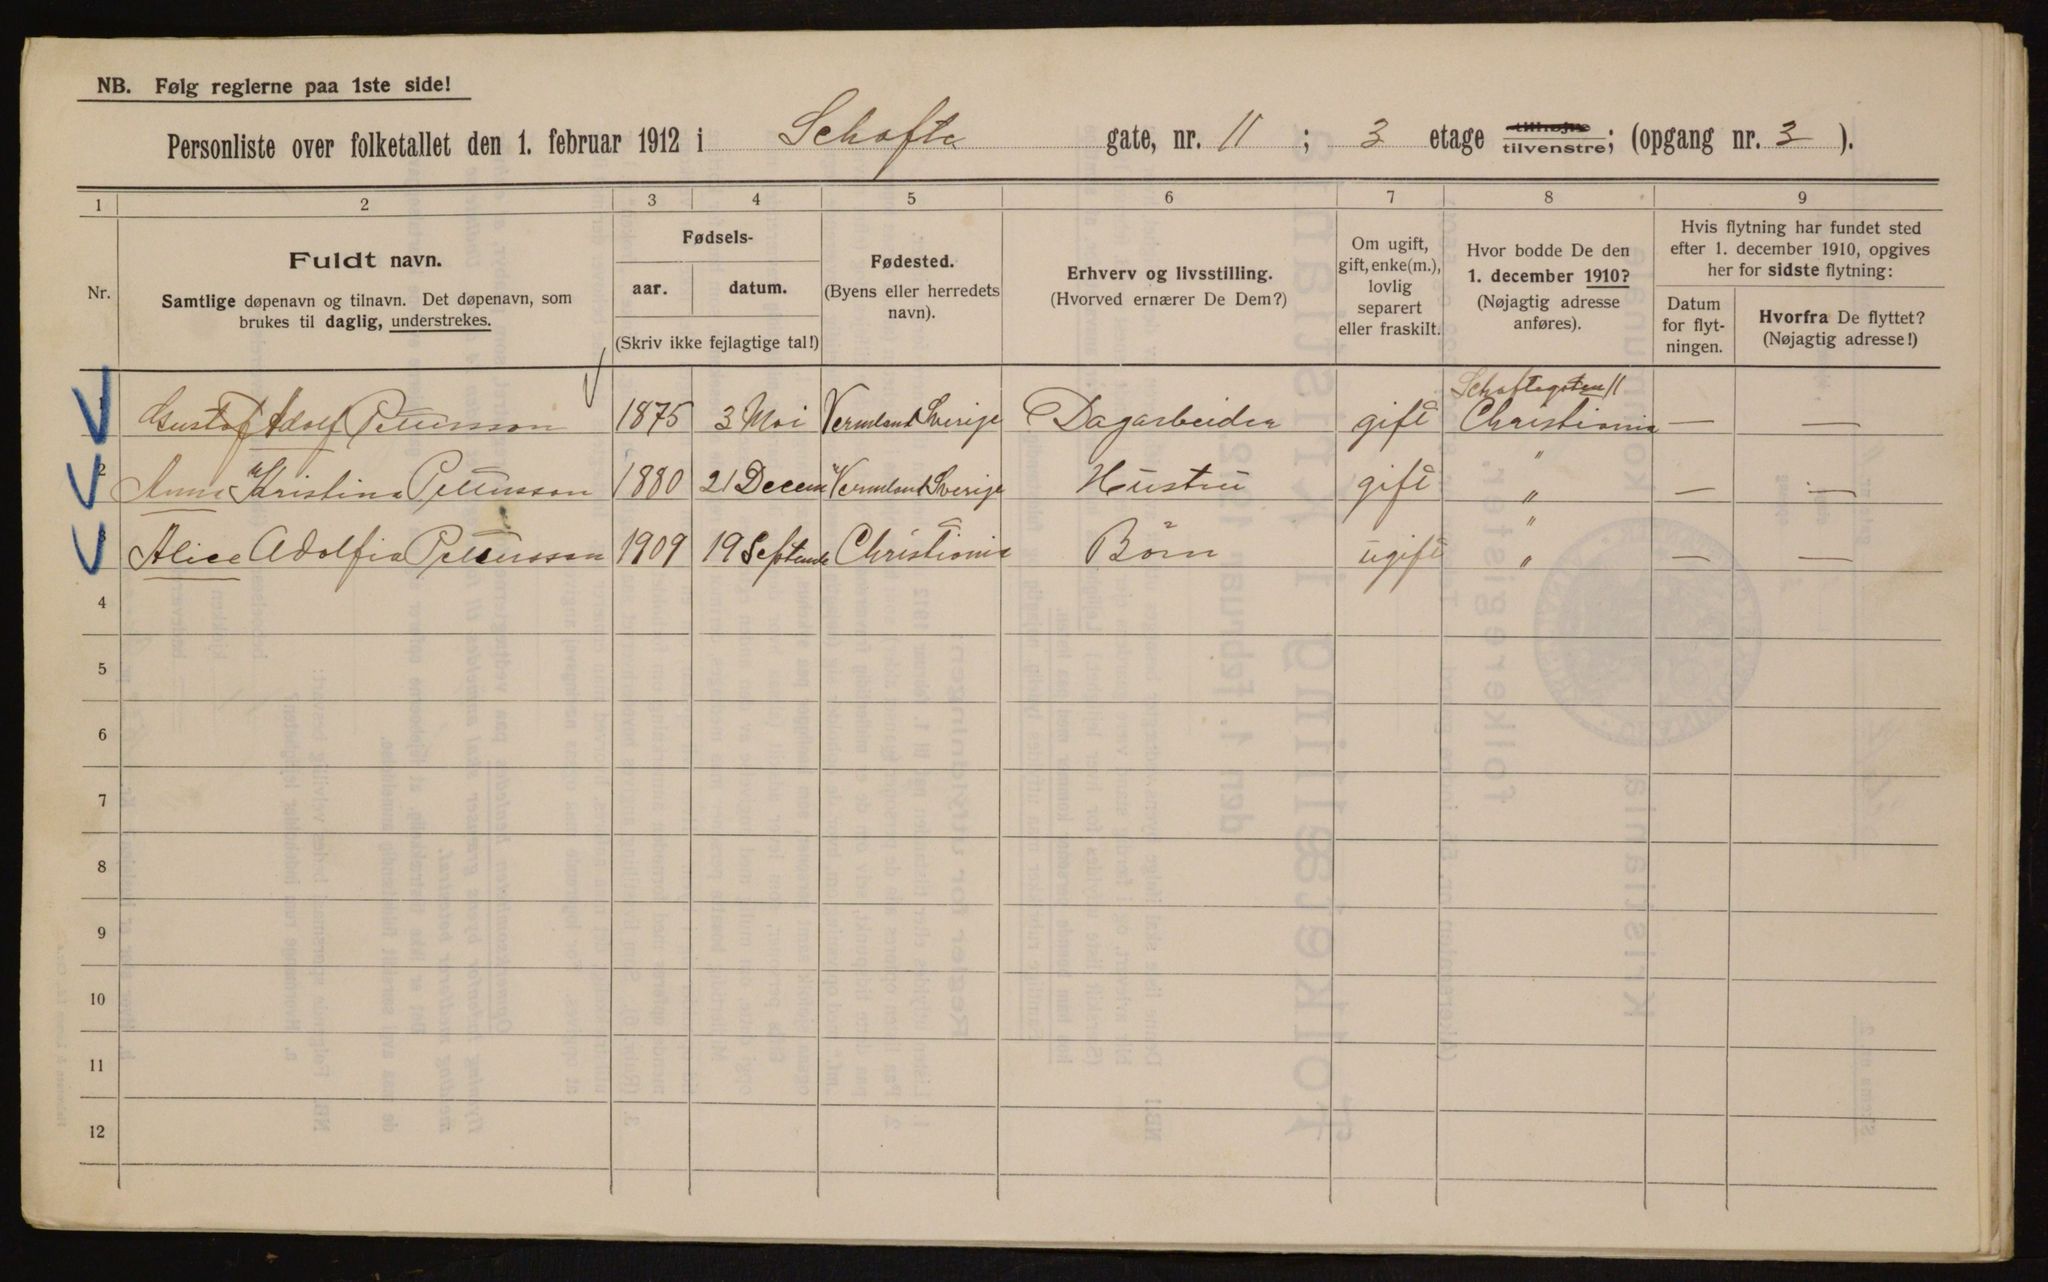 NB. Følg reglerne paa 1ste side!
Personliste over folketallet den 1. februar 1912 i Schafte gate, nr. 11 ; 3 etage tilhøjre tilvenstre; (opgang nr. 3 ).
1 2 3 4 5 6 7 8 9
Nr.
Fuldt navn.
Samtlige døpenavn og tilnavn. Det døpenavn, som
brukes til daglig, understrekes.
Fødsels-
aar. datum.
(Skriv ikke fejlagtige tal!)
Fødested.
(Byens eller herredets
navn).
Erhverv og livsstilling.
(Hvorved ernærer De Dem?)
Om ugift,
gift, enke(m.),
lovlig
separert
eller fraskilt.
Hvor bodde De den
1. december 1910?
(Nøjagtig adresse
anføres).
Hvis flytning har fundet sted
efter 1. december 1910, opgives
her for sidste flytning:
Datum
for flyt-
ningen.
Hvorfra De flyttet?
(Nøjagtig adresse!)
Schaftegaten 11
1 Gustaf Adolf Pettersson 1875 3 Mai Vermland Sverige Dagarbeider gift Christiania — —
2 Anna Kristina Pettersson 1880 21 Decem Vermland Sverige Hustru gift " — —
3 Alice Adolfia Pettersson 1909 19 Septembe Christiania Børn ugift " — —
4
5
6
7
8
9
10
11
12